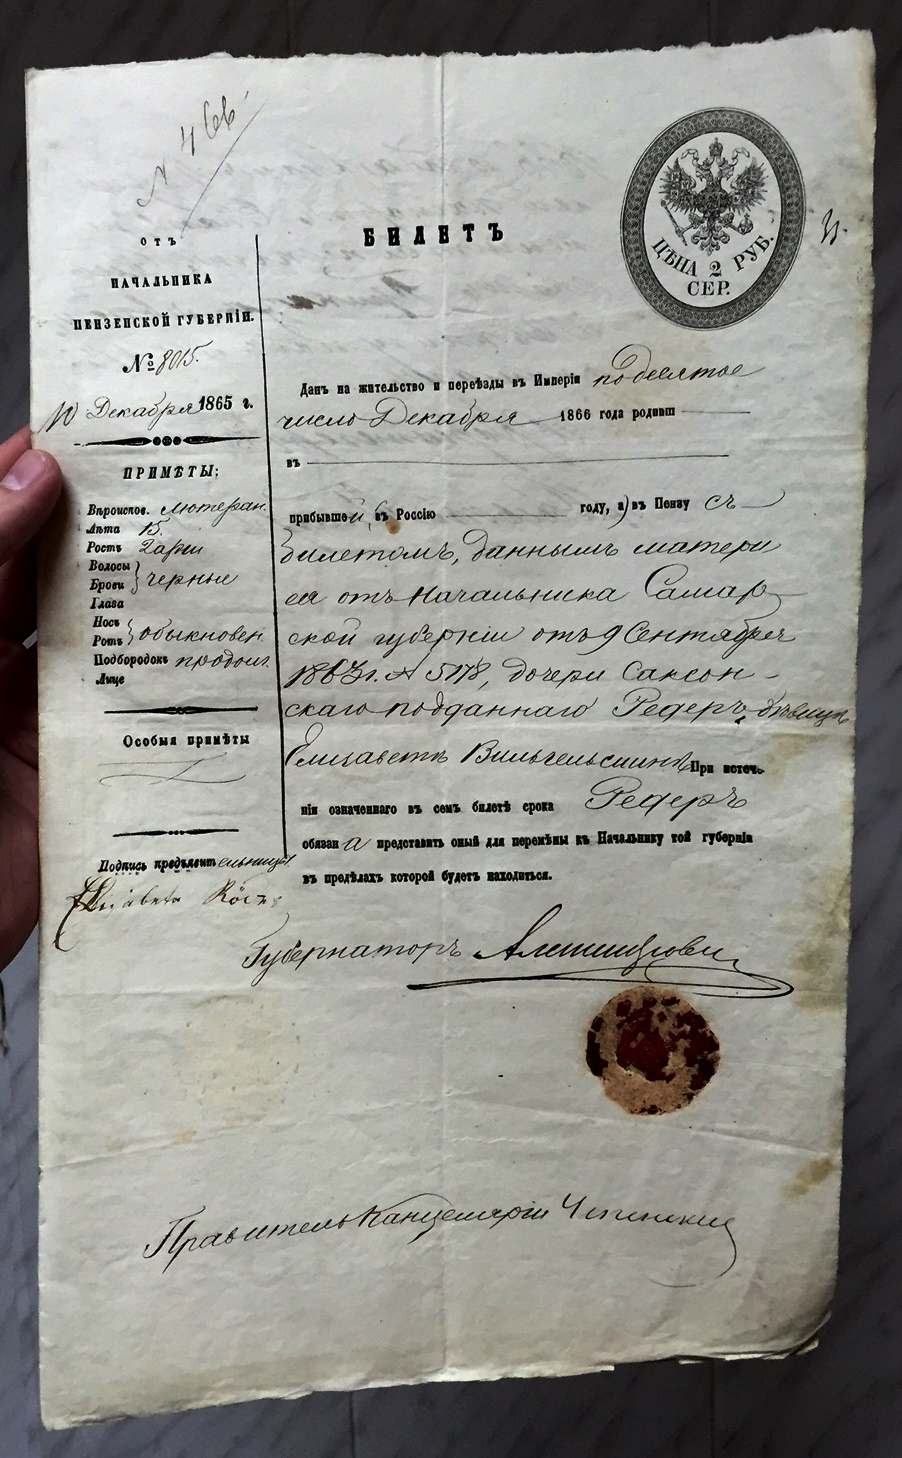 N 466
ОТЪ
НАЧАЛЬНИКА
ПЕНЗЕНСКОЙ ГУБЕРНІИ.
№ 8015.
10 Декабря 1865 г.
ПРИМѢТЫ:
Вѣроиспов. Лютеран.
Лѣта 15.
Ростъ 2 арш
Волосы
Брови черные
Глаза
Носъ
Ротъ обыкновен.
Подбородокъ продолг.
Лице
Особыя примѣты
Подпись предъявительницы.
Elisabeta
БИЛЕТЪ
ЦѢНА 2 РУБ.
СЕР.
Данъ на жительство и переѣзды въ Имперіи по десятое
число Декабря 1866 года родивш
въ
прибывшей, въ Россію году, а) въ Пензу съ
билетомъ, даннымъ матери
ея отъ Начальника Самар
ской губерніи отъ 9 Сентября
1863 г. № 5178, дочери Саксон-
скаго подданнаго Редеръ, дѣвицѣ
Елизаветѣ Вильгельминѣ При истече-
ніи означеннаго въ семъ билетѣ срока Редеръ
обязана представить оный для перемѣны къ Начальнику той губерніи
въ предѣлахъ которой будетъ находиться.
Губернаторъ
Правитель Канцеляріи